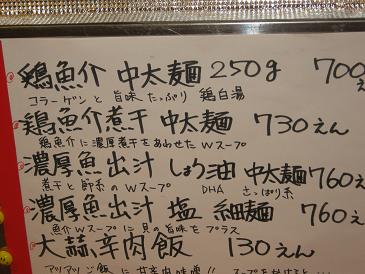 鶏魚介 中太麺 250g 700え
コラーゲンと 旨味 たっぷり 鶏白湯
鶏魚介煮干 中太麺 730えん
鶏魚介に濃厚煮干をあわせた Wスープ
濃厚魚出汁 しょう油 中太麺 760え
煮干と節系のWスープ DHA さっぱり系
濃厚魚出汁 塩 細麺 760え
魚介Wスープに貝の旨味をプラス
大蒜辛肉飯 130えん
アツアツご飯に甘辛肉味噌!! スープをかけると